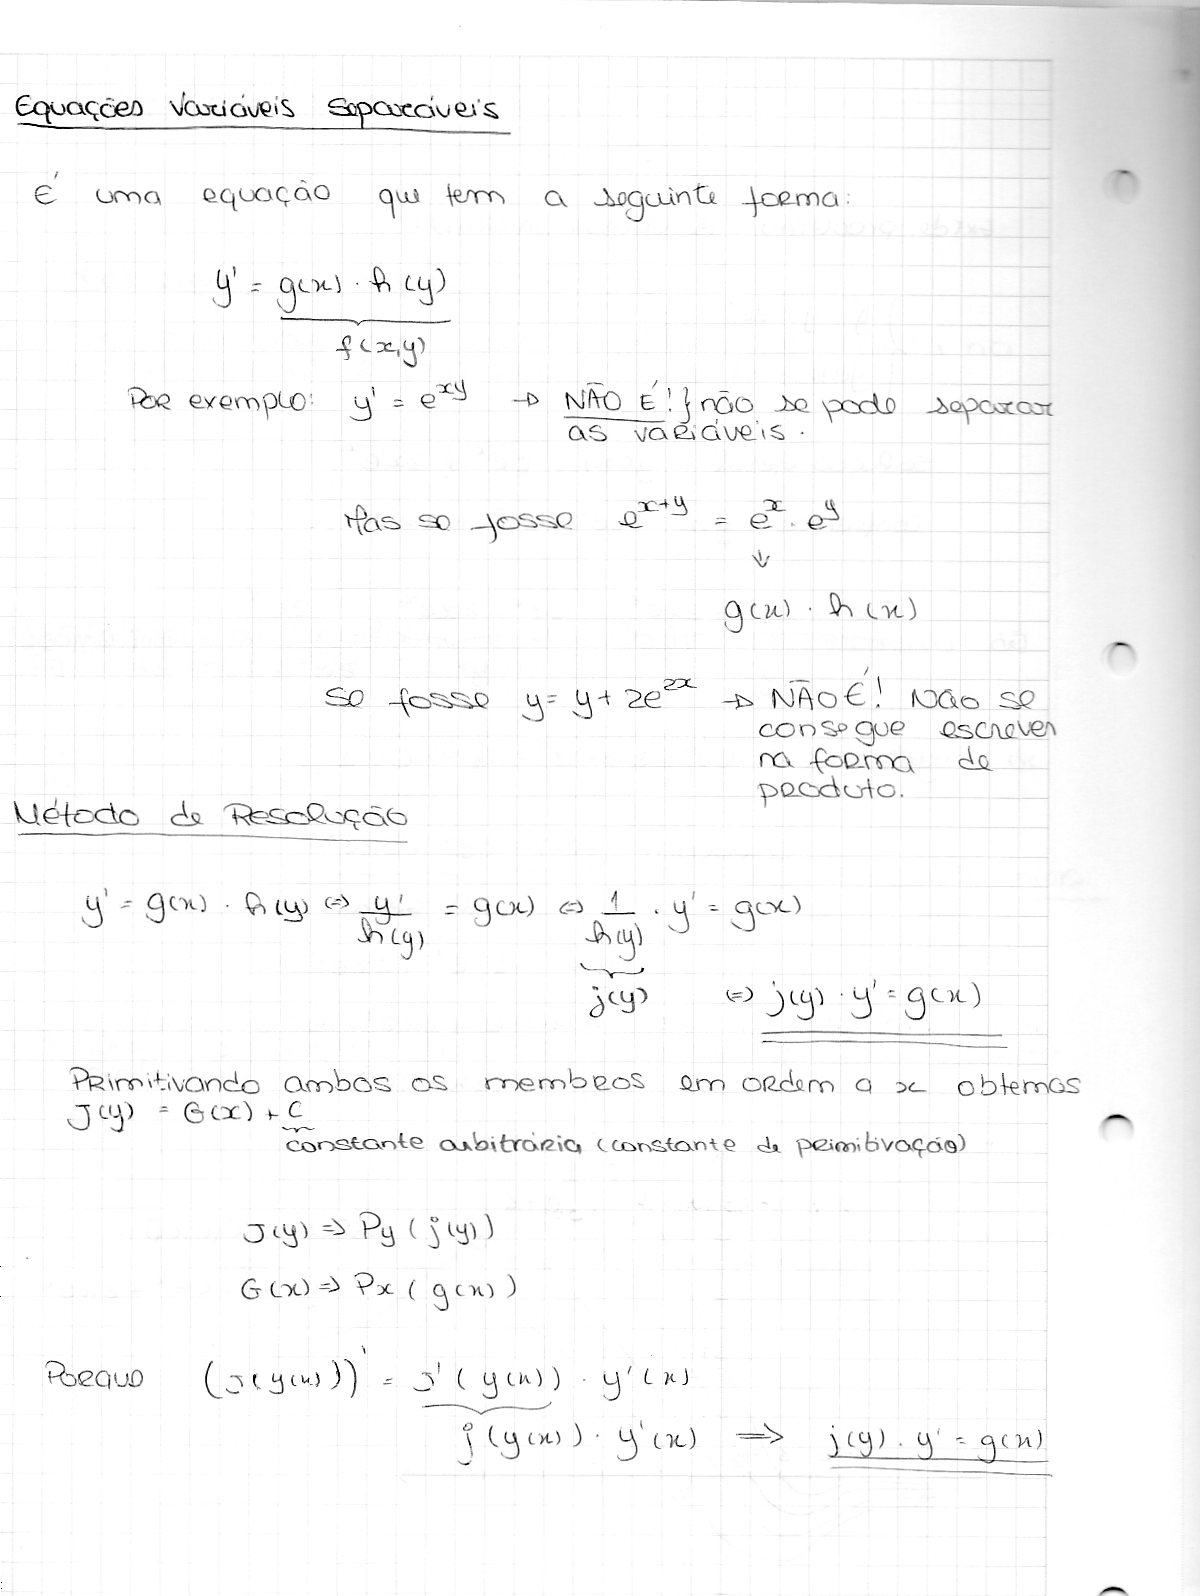 Equações Variáveis Separáveis
É uma equação que tem a seguinte forma:
y' = g(x) · h(y)
f(x,y)
Por exemplo: y' = e^{xy} → NÃO É! } não se pode separar
as variáveis.
Mas se fosse e^{x+y} = e^x · e^y
↓
g(x) · h(x)
Se fosse y = y + 2e^{2x} → NÃO É! Não se
consegue escrever
na forma de
produto.
Método de Resolução
y' = g(x) · h(y) ⇔ y'/h(y) = g(x) ⇔ 1/h(y) · y' = g(x)
j(y) ⇔ j(y) · y' = g(x)
Primitivando ambos os membros em ordem a x obtemos
J(y) = G(x) + C
constante arbitrária (constante de primitivação)
J(y) ⇒ Py (j(y))
G(x) ⇒ Px (g(x))
Porque (J(y(x)))' = J'(y(x)) · y'(x)
j(y(x)) · y'(x) ⟹ j(y) · y' = g(x)